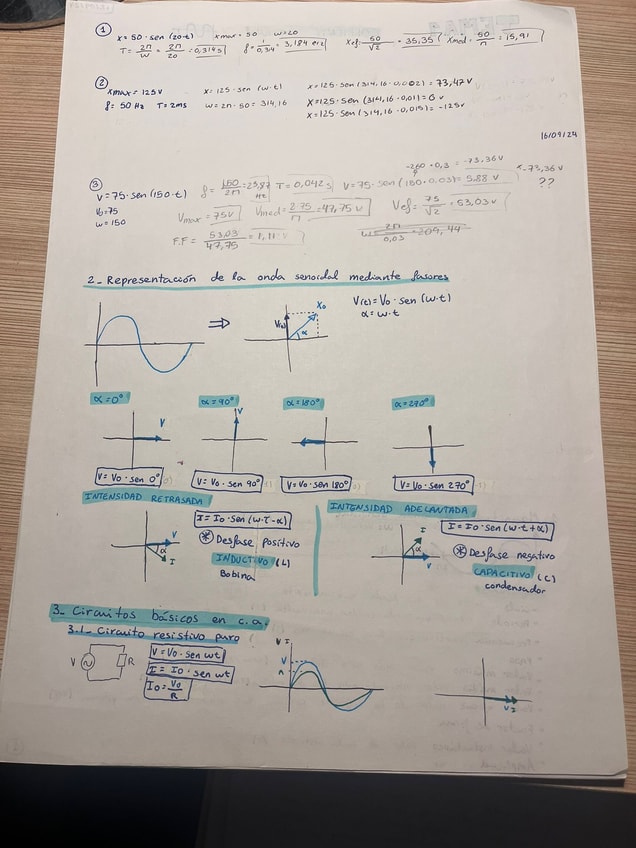 ① x = 50 · sen (20·t) xmax = 50 w = 20
T = 2π/w = 2π/20 = 0,314s f = 1/0,314 = 3,184 Hz Xef: 50/√2 = 35,35 Xmed = 50/π = 15,91
② Xmax = 125V x = 125 · sen (w·t) x = 125 · sen (314,16 · 0,002) = 73,47 v
f = 50 Hz T = 2ms w = 2π · 50 = 314,16 x = 125 · sen (314,16 · 0,01) = 0 v
x = 125 · sen (314,16 · 0,015) = -125v
16/09/24
-260 · 0,3 = -73,36v
③ V = 75 · sen (150·t) f = 150/2π = 23,87 Hz T = 0,042s V = 75 · sen (150 · 0.03) = 5,88 v -73,36v ??
V0 = 75
w = 150
Vmax = 75v Vmed = 2·75/π = 47,75 v Vef = 75/√2 = 53,03v
F.F = 53,03/47,75 = 1,11 v w = 2π/0,03 = 209,44
2_ Representación de la onda senoidal mediante fasores
⇒ V(t) X0 α V(t) = V0 · sen (w·t)
α = w·t
α = 0° α = 90° α = 180° α = 270°
V V
V = V0 · sen 0° V = V0 · sen 90° V = V0 · sen 180° V = V0 · sen 270°
INTENSIDAD RETRASADA INTENSIDAD ADELANTADA
I = I0 · sen (w·t - α) I = I0 · sen (w·t + α)
V α I * Desfase positivo I α V * Desfase negativo
INDUCTIVO (L) CAPACITIVO (C)
Bobina condensador
3_ Circuitos básicos en c.a.
3.1_ Circuito resistivo puro
V R V = V0 · sen wt V I
I = I0 · sen wt V
I0 = V0/R V I